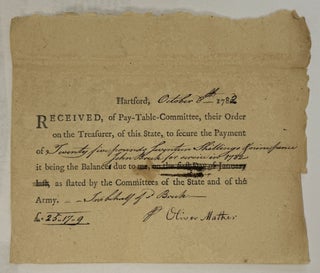 Hartford, October 8th 1782
RECEIVED, of Pay-Table-Committee, their Order
on the Treasurer, of this State, to secure the Payment
of Twenty five pounds Seventeen Shillings & nine pence
John for service in 1782
it being the Balance due to me, on the first Day of January
last, as stated by the Committees of the State and of the
Army. — In behalf of sd
£25-17-9 Oliver Mather